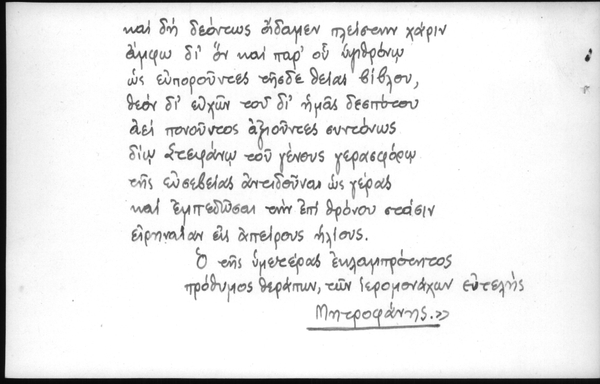 καὶ δὴ δεόντως οἴδαμεν πλείστην χάριν
ἄμφω δι' ὃν καὶ παρ' οὗ ὑψιθρόνῳ
ὡς εὐποροῦντες τῆσδε θείας βίβλου,
θεὸν δι' εὐχῶν τοῦ δι' ἡμᾶς δεσπότου
ἀεὶ πονοῦντος ἀξιοῦντες συντόνως
δίῳ Στεφάνῳ τοῦ γένους γερασφόρῳ
τῆς εὐσεβείας ἀντιδοῦναι ὡς γέρας
καὶ ἐμπεδῶσαι τὴν ἐπὶ θρόνου στάσιν
εἰρηναίαν εἰς ἀπείρους ἡλίους.
Ὁ τῆς ὑμετέρας ἐκλαμπρότητος
πρόθυμος θεράπων, τῶν ἱερομονάχων εὐτελὴς
Μητροφάνης.»